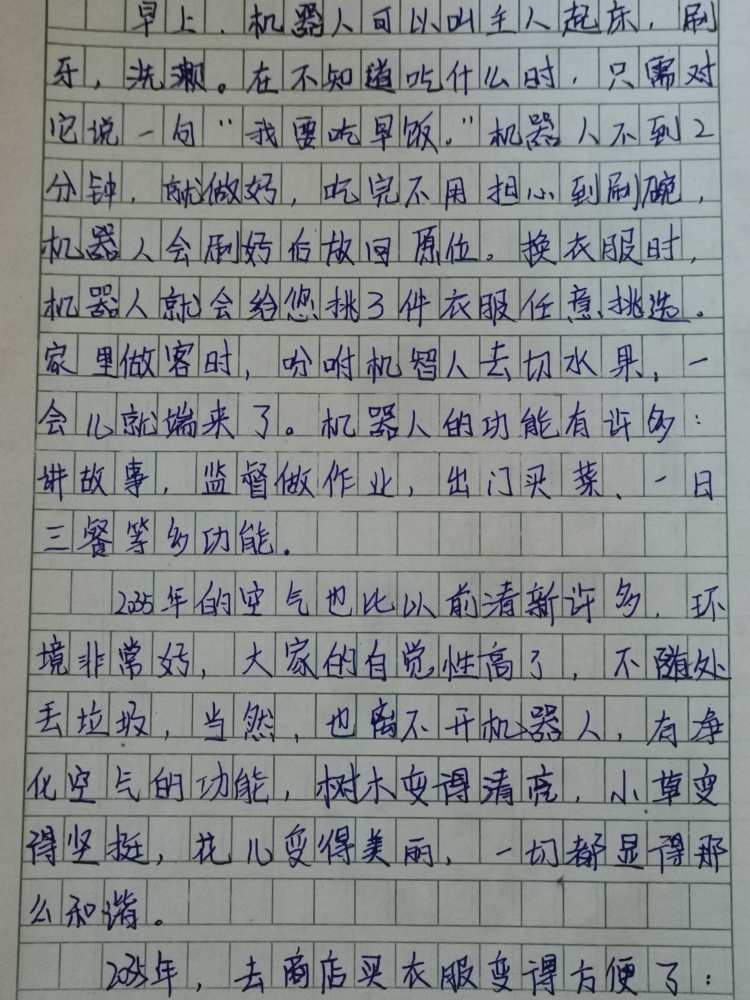 早上，机器人可以叫主人起床，刷
牙，洗濑。在不知道吃什么时，只需对
它说一句“我要吃早饭。”机器人不到2
分钟，就做好，吃完不用担心到刷碗，
机器人会刷好后放回原位。换衣服时，
机器人就会给您挑3件衣服任意挑选。
家里做客时，吩咐机智人去切水果，一
会儿就端来了。机器人的功能有许多：
讲故事，监督做作业，出门买菜、一日
三餐等多功能。
2035年的空气也比以前清新许多，环
境非常好，大家的自觉性高了，不随处
丢垃圾，当然，也离不开机器人，有净
化空气的功能，树木变得清亮，小草变
得坚挺，花儿变得美丽，一切都显得那
么和谐。
2035年，去商店买衣服变得方便了：